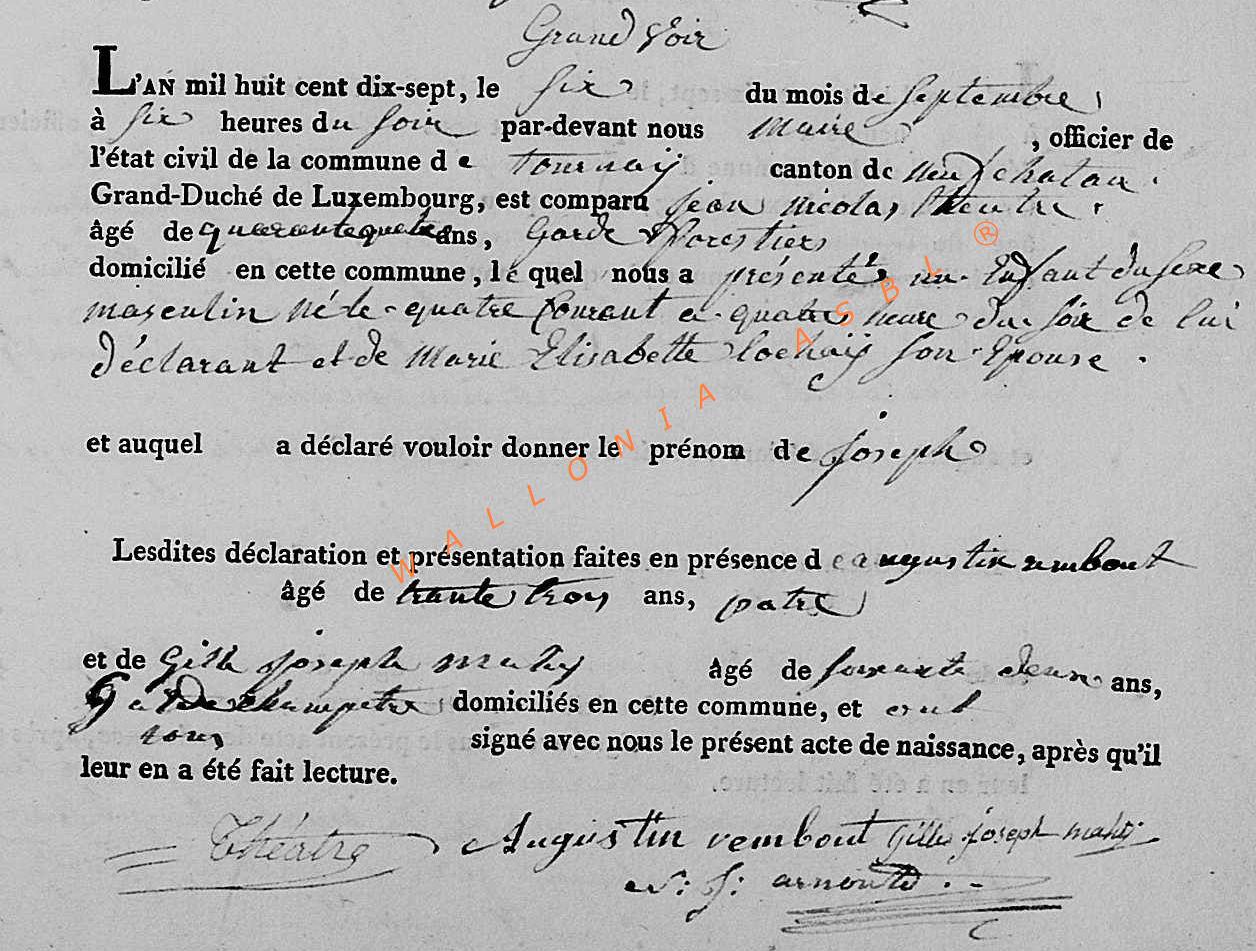 Grand Voir
L'AN mil huit cent dix-sept, le six du mois de septembre,
à six heures du soir par-devant nous maire, officier de
l'état civil de la commune de tournay canton de neufchatau.
Grand-Duché de Luxembourg, est comparu jean nicolas theatre.
âgé de quarantequatre ans, Garde Forestiers
domicilié en cette commune, le quel nous a présentés un Enfant du sexe
masculin né le quatre Courant a quatres heure du soir de lui
déclarant et de Marie Elisabette Lochay son Epouse.
et auquel a déclaré vouloir donner le prénom de joseph
Lesdites déclaration et présentation faites en présence de augustin vembout
âgé de trante troy ans, patre
et de Gille joseph mahy âgé de soixante deux ans,
Garde champetre domiciliés en cette commune, et ont
tous signé avec nous le présent acte de naissance, après qu'il
leur en a été fait lecture.
Théatre Augustin vembout Gilles joseph mahy
N: J: arnould.
WALLONIA ASBL ®